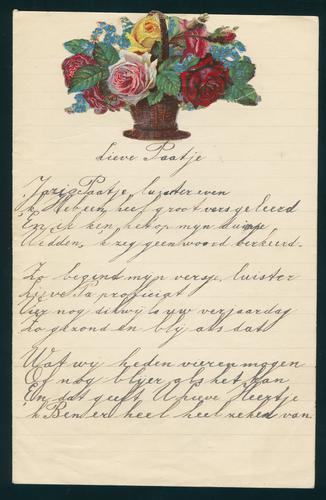 Lieve Paatje
Zeg Paatje, luister even
'k Heb een heel groot vers geleerd
En ik ken het op mijn duimpje
Wedden, 'k zeg geen woord verkeerd.
Zo begind myn versje, luister
Lieve Pa proficiat
Vier nog dikwijls uw verjaardag
Zo gezond en blij als dat
Wat wij heden vieren mogen
Of nog blijer als het kan
En dat geeft U lieve Heertje
'k Ben er heel heel zeker van.